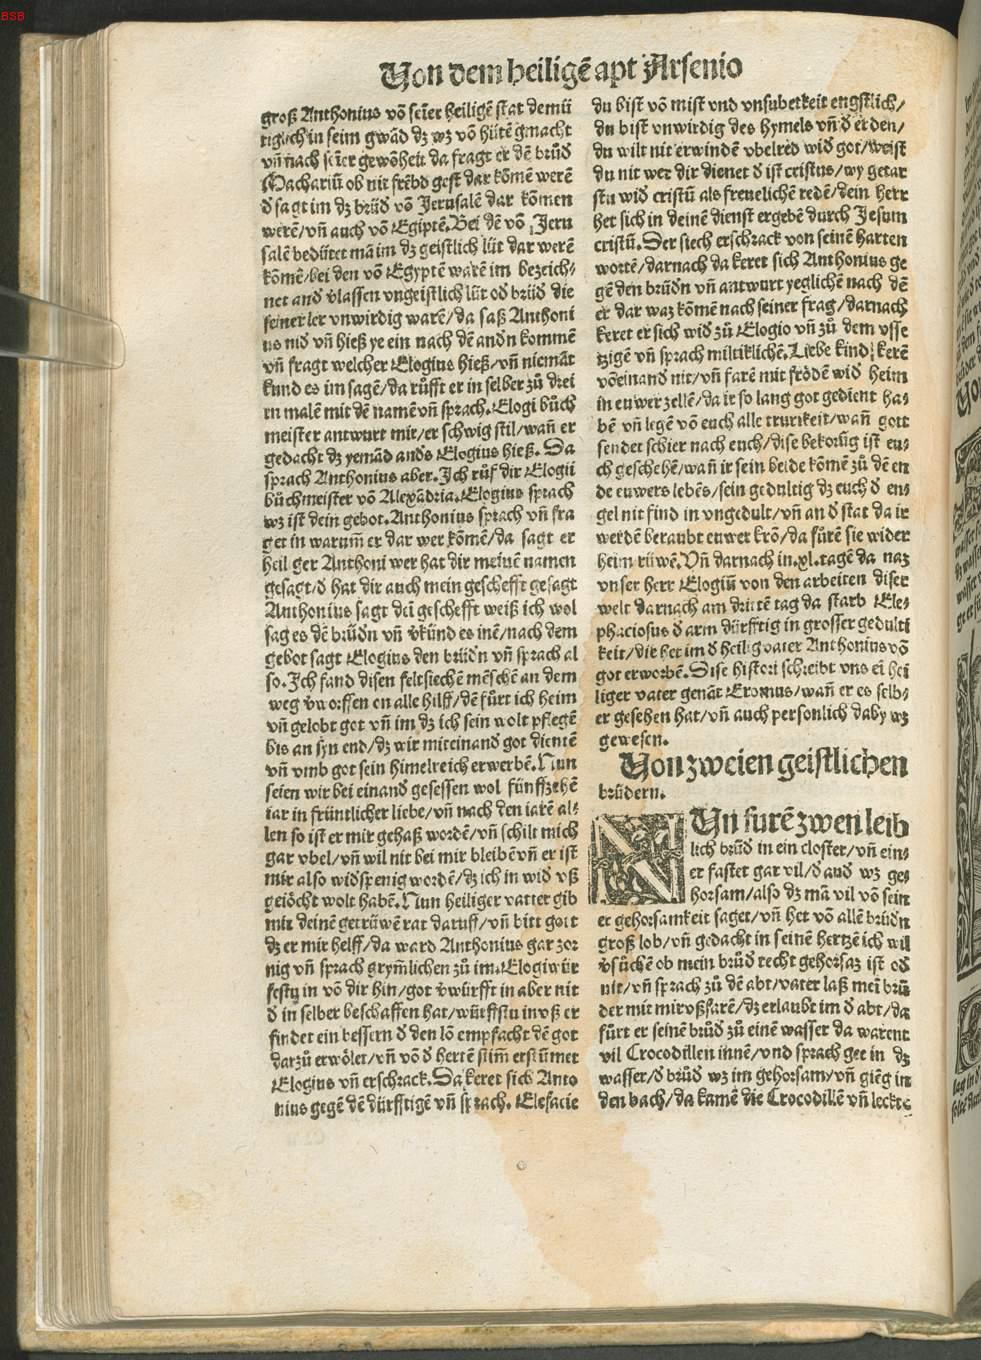 BSB
Von dem heiligē apt Arsenio
groß Anthonius vō seīer heiligē stat demü
tigklich in seim gwād dz wz vō hütē gmacht
vn̄ nach seīer gewōheit da fragt er dē brůd
Machariū ob nit frēbd gest dar kōmē werē
d̕ sagt im dz brůd vō Jerusalē dar kōmen
werē/vn̄ auch vō Egiptē. Bei dē vō Jeru
salē bedütet mā im dz geistlich lüt dar werē
kōmē/bei den vō Egyptē warē im bezeich⸗
net and v̕lassen vngeistlich lüt od brůd die
seiner ler vnwirdig warē/da saß Anthoni
us nid vn̄ hieß ye ein nach dē andn kommē
vn̄ fragt welcher Elogius hieß/vn̄ niemāt
kund es im sagē/da rüfft er in selber zů drei
en malē mit dē namē vn̄ sprach. Elogi bůch
meister antwurt mir/er schwig stil/wan̄ er
gedacht dz yemād ands Elogius hieß. Da
sprach Anthonius aber. Ich růf dir Elogii
bůchmeister vō Alexādria. Elogius sprach
wz ist dein gebot. Anthonius sprach vn̄ fra
get in warum̄ er dar wer kōmē/da sagt er
heil ger Anthoni wer hat dir meinē namen
gesagt/d̕ hat dir auch mein geschefft gesagt
Anthonius sagt deī geschefft weiß ich wol
sag es dē brůdn vn̄ v̕künd es inē/nach dem
gebot sagt Elogius den brůdn vn̄ sprach al
so. Ich fand disen feltsiechē mēschē an dem
weg v̕worffen on alle hilff/dē fürt ich heim
vn̄ gelobt got vn̄ im dz ich sein wolt pflegē
bis an syn end/dz wir miteinand got dientē
vn̄ vmb got sein himelreich erwerbē. Nun
seien wir bei einand gesessen wol fünffzehē
iar in früntlicher liebe/vn̄ nach den iarē al⸗
len so ist er mir gehaß wordē/vn̄ schilt mich
gar vbel/vn̄ wil nit bei mir bleibē vn̄ er ist
mir also widspenig wordē/dz ich in wid vß
geiöcht wolt habē. Nun heiliger vatter gib
mir deinē getrüwē rat daruff/vn̄ bitt gott
dz er mir helff/da ward Anthonius gar zor
nig vn̄ sprach grym̄lichen zů im. Elogi wür
festu in vō dir hin/got v̕würfft in aber nit
d̕ in selber beschaffen hat/würffstu in vß er
findet ein bessern d̕ den lō empfacht dē got
darzů erwölet/vn̄ vō d̕ hertē stim̄ erstūmet
Elogius vn̄ erschrack. Da keret sich Anto
nius gegē dē dürfftigē vn̄ sprach. Elefacie
du bist vō mist vnd vnsubetkeit engstlich/
du bist vnwirdig des hymels vn̄ d̕ erden/
du wilt nit erwindē vbelred wid got/weist
du nit wer dir dienet d̕ ist cristus/wy getar
stu wid cristū als freuelichē redē/dein herr
het sich in deinē dienst ergebē durch Jesum
cristū. Der siech erschrack von seinē harten
wortē/darnach da keret sich Anthonius ge
gē den brůdn vn̄ antwurt yeglichē nach dē
er dar waz kōmē nach seiner frag/darnach
keret er sich wid zů Elogio vn̄ zů dem vsse
tzigē vn̄ sprach miltiklichē. Liebe kind kerē
vō einand nit/vn̄ farē mit frödē wid heim
in euwer zellē/da ir so lang got gedient ha⸗
bē vn̄ legē vō euch alle trurikeit/wan̄ gott
sendet schier nach euch/dise bekorūg ist eu⸗
ch geschehē/wan̄ ir sein beide kōmē zů dē en
de euwers lebēs/sein gedultig dz euch d̕ en⸗
gel nit find in vngedult/vn̄ an d̕ stat da ir
werdē beraubt euwer krō/da fürē sie wider
heim rüwē. Vn̄ darnach in .xl. tagē da naz
vnser herr Elogiū von den arbeiten diser
welt darnach am drittē tag da starb Ele⸗
phaciosus d̕ arm dürfftig in grosser gedulti
keit/die het im d̕ heilig vater Anthonius vō
got erworbē. Dise histori schreibt vns eī hei
liger vater genāt Eromus/wan̄ er es selb⸗
er gesehen hat/vn̄ auch personlich daby wz
gewesen.
Von zweien geistlichen
brüdern.
NVn furē zwen leib
lich brůd in ein closter/vn̄ ein⸗
er fastet gar vil/d̕ and wz ge⸗
horsam/also dz mā vil vō sein
er gehorsamkeit saget/vn̄ het vō allē brůdn
groß lob/vn̄ gedacht in seinē hertzē ich wil
v̕sůchē ob mein brůd recht gehorsaz ist od
nit/vn̄ sprach zů dē abt/vater laß meī brů
der mit mir vßfarē/dz erlaubt im d̕ abt/da
fürt er seinē brůd zů einē wasser da warent
vil Crocodillen innē/vnd sprach gee in dz
wasser/d̕ brůd wz im gehorsam/vn̄ gieng in
den bach/da kamē die Crocodillē vn̄ leckte